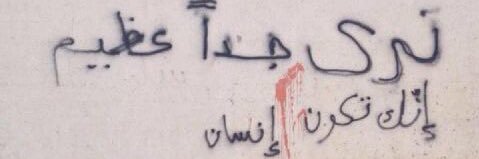 ترى جداً عظيم
إنّك تكون إنسان